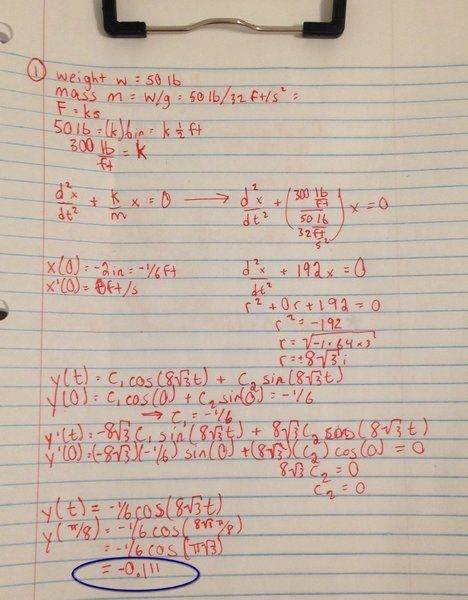 ① weight w = 50 lb
mass m = w/g = 50 lb/32 ft/s² =
F = ks
50 lb = (k) 6in = k ½ ft
300 lb/ft = k
d²x/dt² + k/m x = 0 → d²x/dt² + ((300 lb/ft)/(50 lb/(32 ft/s²))) x = 0
x(0) = -2in = -1/6 ft
x'(0) = 0 ft/s
d²x/dt² + 192x = 0
r² + 0r + 192 = 0
r² = -192
r = √(-1·64×3)
r = ±8√3 i
y(t) = C₁ cos(8√3t) + C₂ sin(8√3t)
y(0) = C₁ cos(0) + C₂ sin(0) = -1/6
→ C = -1/6
y'(t) = -8√3 C₁ sin(8√3t) + 8√3 C₂ cos(8√3t)
y'(0) = (-8√3)(-1/6) sin(0) + (8√3)(C₂) cos(0) = 0
8√3 C₂ = 0
C₂ = 0
y(t) = -1/6 cos(8√3t)
y(π/8) = -1/6 cos(8√3 π/8)
= -1/6 cos(π√3)
= -0.111